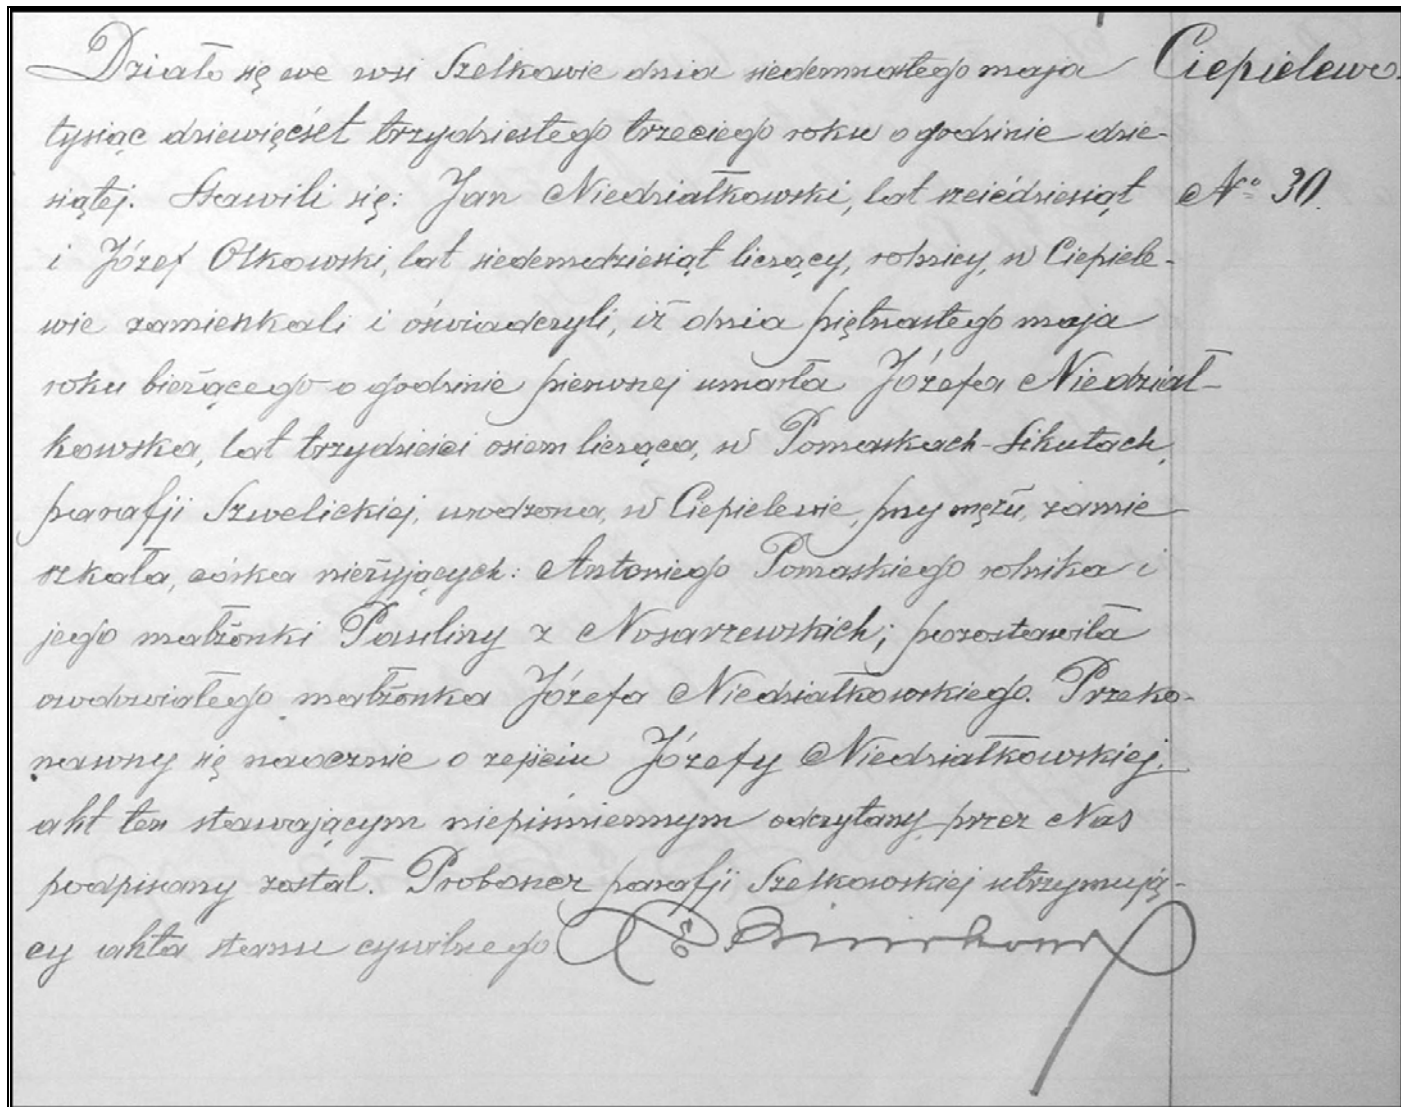 Działo się we wsi Szelkowie dnia siedemnastego maja
Ciepielewo.
tysiąc dziewięćset trzydziestego trzeciego roku o godzinie dzie-
siątej. Stawili się: Jan Niedziałkowski, lat sześćdziesiąt
No 30.
i Józef Olkowski, lat siedemdziesiąt liczący, rolnicy, w Ciepiele-
wie zamieszkali i oświadczyli, iż dnia piętnastego maja
roku bieżącego o godzinie pierwszej umarła Józefa Niedział-
kowska, lat trzydzieści osiem licząca, w Pomaskach-Sikutach,
parafji Szwelickiej, urodzona, w Ciepielewie, przy mężu, zamie
szkała, córka nieżyjących: Antoniego Pomaskiego rolnika i
jego małżonki Pauliny z Nosarzewskich; pozostawiła
owdowiałego małżonka Józefa Niedziałkowskiego. Przeko-
nawszy się naocznie o zejściu Józefy Niedziałkowskiej,
akt ten stawającym niepiśmiennym odczytany, przez Nas
podpisany został. Proboszcz parafji Szelkowskiej utrzymują-
cy akta stanu cywilnego